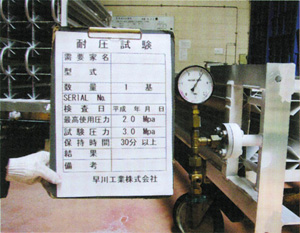 耐圧試験
需要家名
型式
数量 1 基
SERIAL No.
検査日 平成 年 月 日
最高使用圧力 2.0 Mpa
試験圧力 3.0 Mpa
保持時間 30分 以上
結果
備考
早川工業株式会社